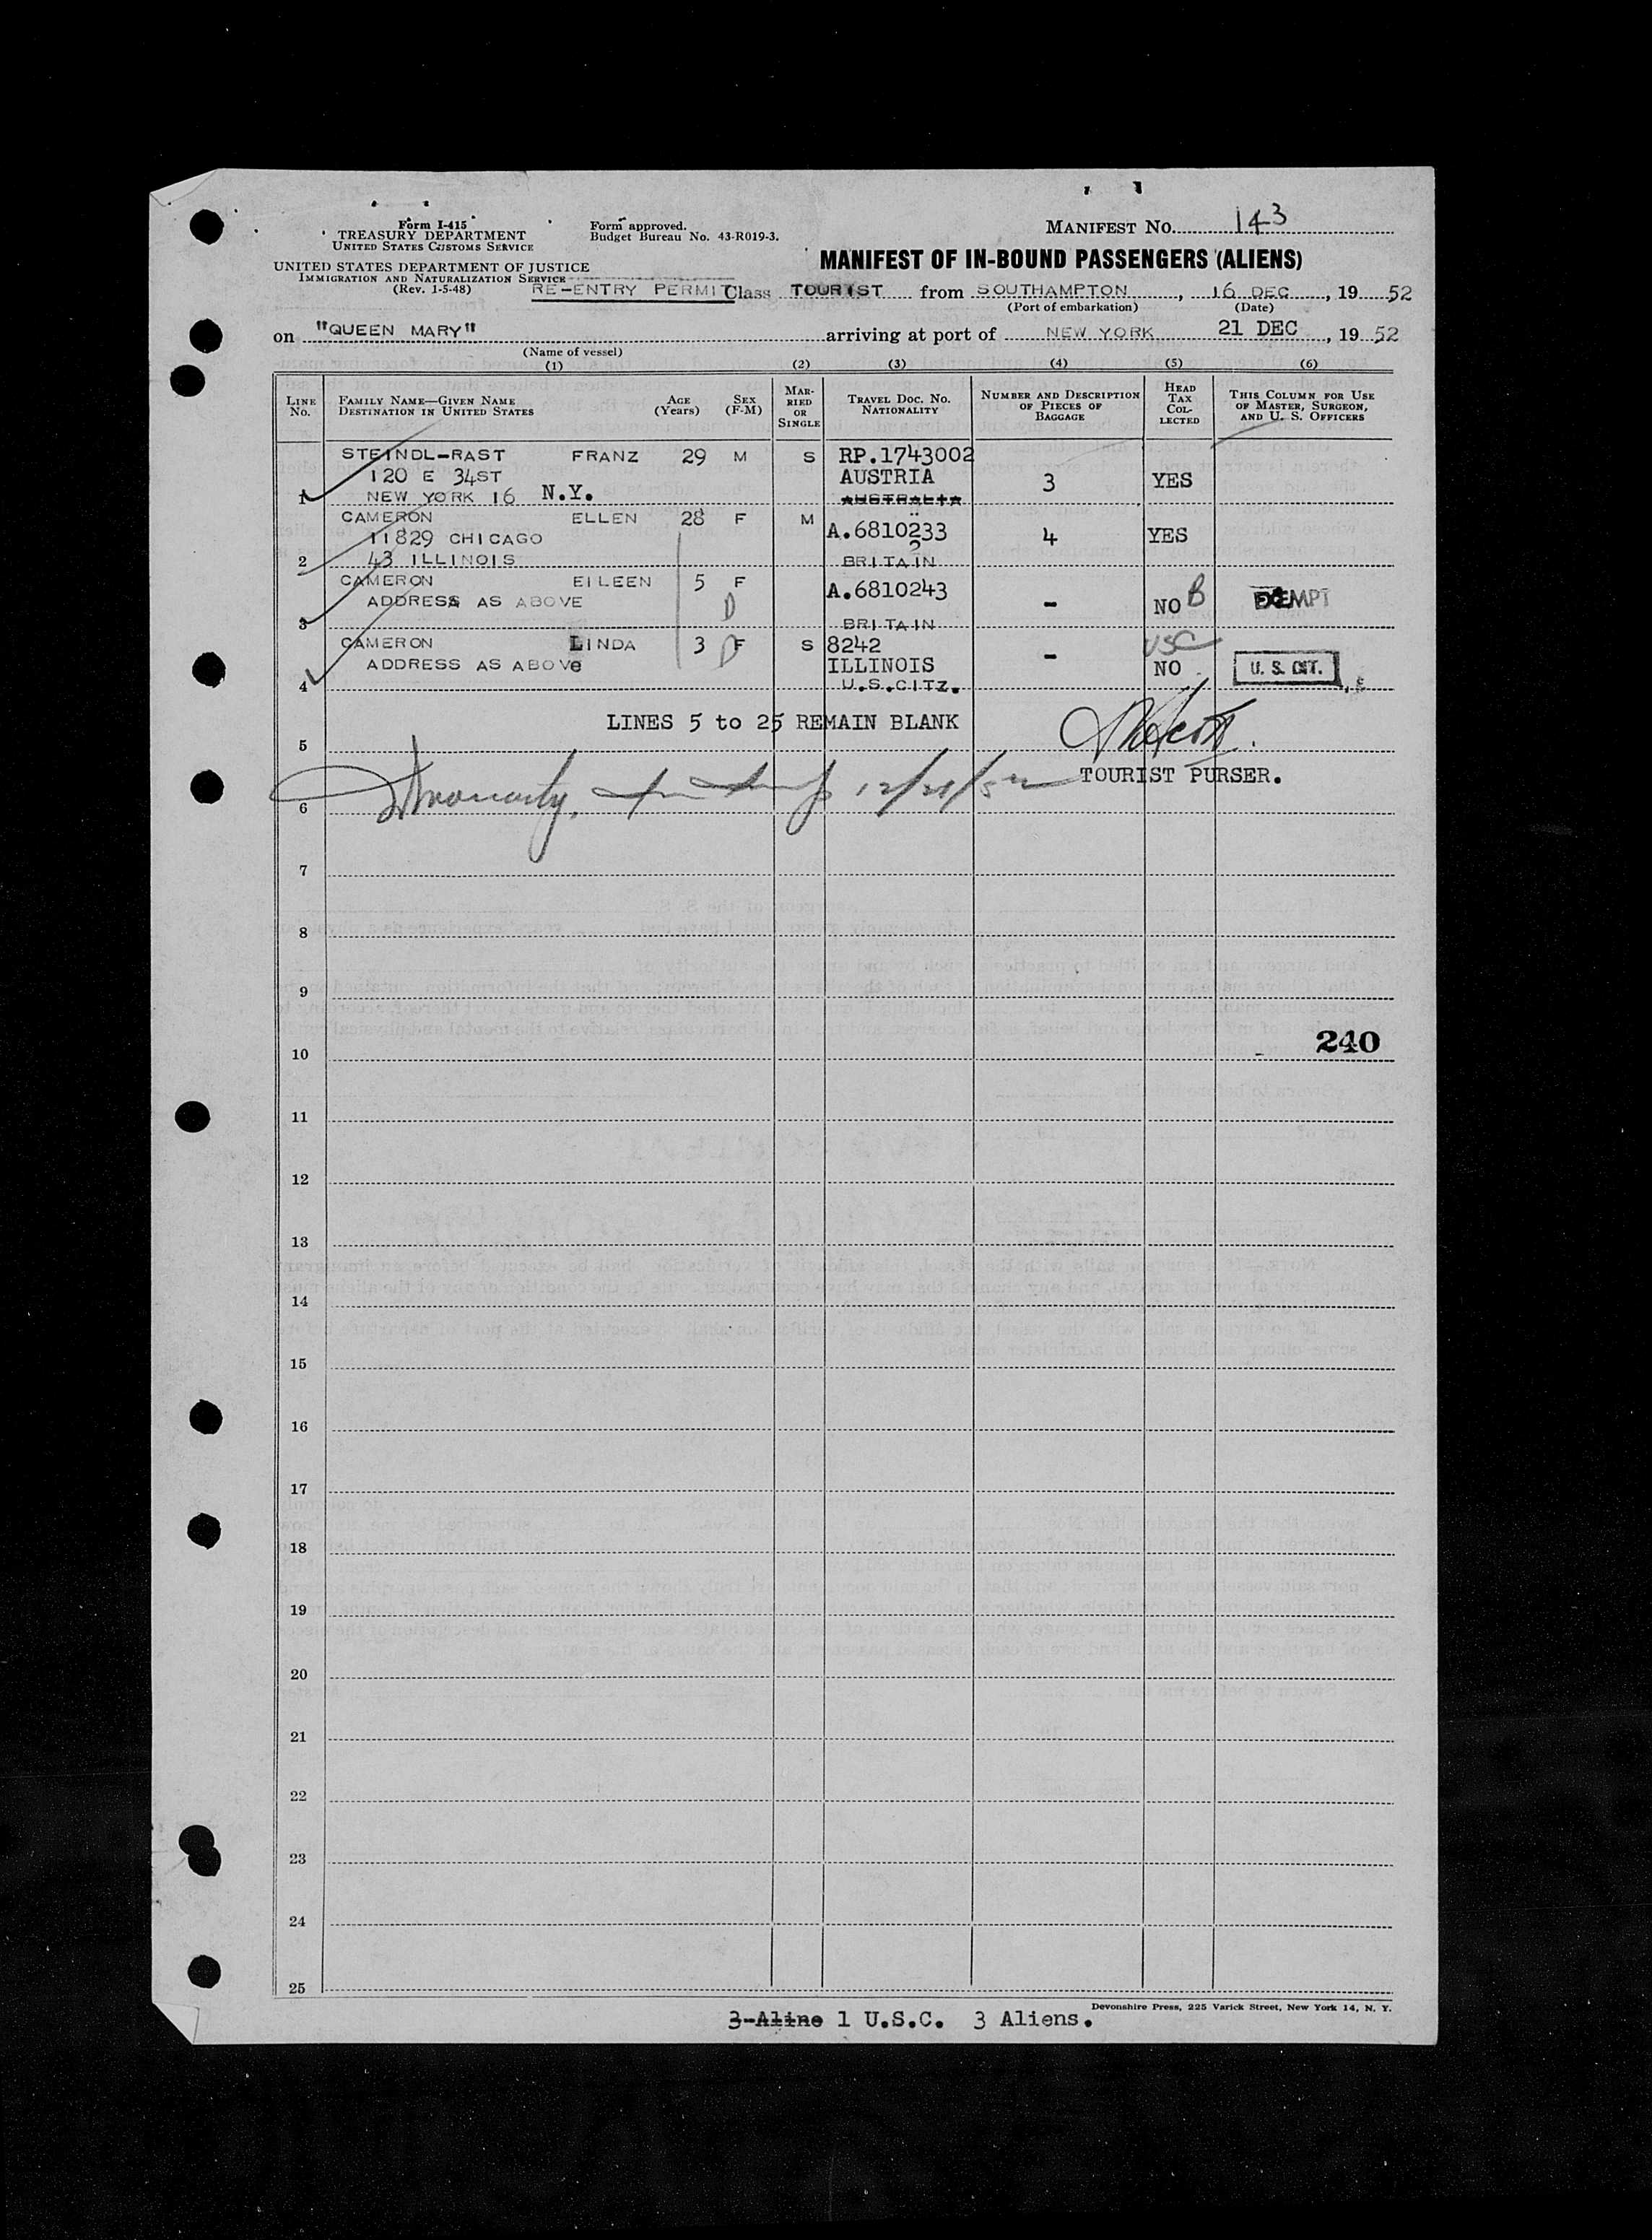 Form I-415
TREASURY DEPARTMENT
UNITED STATES CUSTOMS SERVICE
Form approved.
Budget Bureau No. 43-R019-3.
MANIFEST NO. 143
UNITED STATES DEPARTMENT OF JUSTICE
IMMIGRATION AND NATURALIZATION SERVICE
(Rev. 1-5-48)
MANIFEST OF IN-BOUND PASSENGERS (ALIENS)
RE-ENTRY PERMIT Class TOURIST from SOUTHAMPTON, 16 DEC, 1952
(Port of embarkation) (Date)
on "QUEEN MARY" arriving at port of NEW YORK 21 DEC, 1952
(Name of vessel)
(1) (2) (3) (4) (5) (6)
LINE NO. FAMILY NAME—GIVEN NAME DESTINATION IN UNITED STATES AGE (Years) SEX (F-M) MARRIED OR SINGLE TRAVEL DOC. NO. NATIONALITY NUMBER AND DESCRIPTION OF PIECES OF BAGGAGE HEAD TAX COLLECTED THIS COLUMN FOR USE OF MASTER, SURGEON, AND U. S. OFFICERS
STEINDL-RAST FRANZ 29 M S RP.1743002
120 E 34ST AUSTRIA 3 YES
1 NEW YORK 16 N.Y. AUSTRALIA
CAMERON ELLEN 28 F M A.6810233
11829 CHICAGO 4 YES
2 43 ILLINOIS BRITAIN
CAMERON EILEEN 5 F A.6810243
ADDRESS AS ABOVE - NO B EXEMPT
3 BRITAIN
CAMERON LINDA 3 F S 8242 USC
ADDRESS AS ABOVe ILLINOIS - NO U. S. CIT.
4 U.S.CITZ.
LINES 5 to 25 REMAIN BLANK
5
TOURIST PURSER.
6 12/21/52
7
8
9
240
10
11
12
13
14
15
16
17
18
19
20
21
22
23
24
25
Devonshire Press, 225 Varick Street, New York 14, N. Y.
3-Aline 1 U.S.C. 3 Aliens.